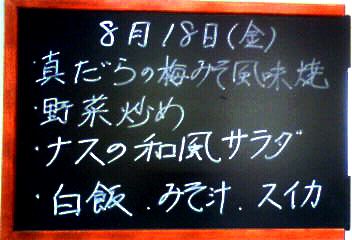 8月18日(金)
・真だらの梅みそ風味焼
・野菜炒め
・ナスの和風サラダ
・白飯.みそ汁.スイカ